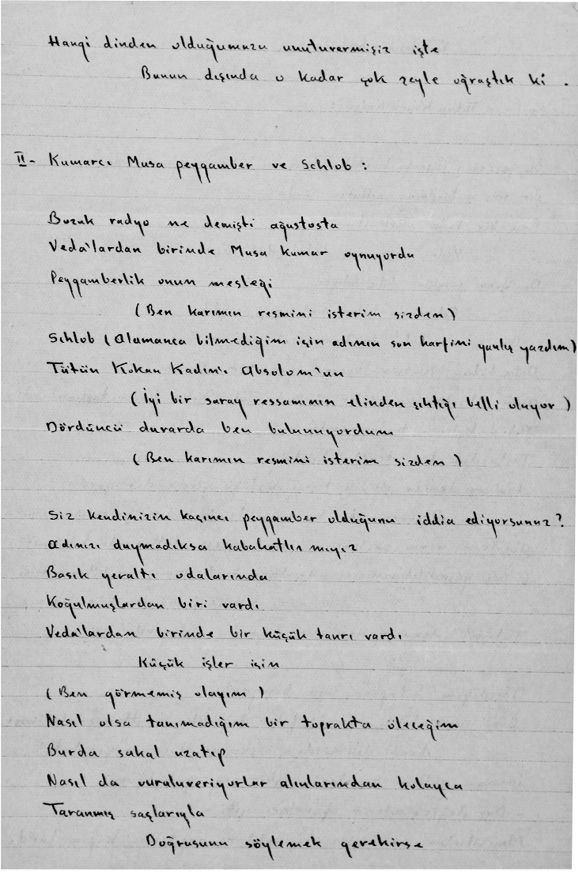 Hangi dinden olduğumuzu unutuvermişiz işte
Bunun dışında o kadar çok şeyle uğraştık ki .
II- Kumarcı Musa peygamber ve Schlob :
Bozuk radyo ne demişti ağustosta
Veda'lardan birinde Musa kumar oynuyordu
Peygamberlik onun mesleği
(Ben karımın resmini isterim sizden)
Schlob (Alamanca bilmediğim için adının son harfini yanlış yazdım)
Tütün Kokan Kadın'ı Absolom'un
(İyi bir saray ressamının elinden çıktığı belli oluyor)
Dördüncü duvarda ben bulunuyordum
(Ben karımın resmini isterim sizden)
Siz kendinizin kaçıncı peygamber olduğunu iddia ediyorsunuz?
Adınızı duymadıksa kabahatlı mıyız
Basık yeraltı odalarında
Koğulmuşlardan biri vardı
Veda'lardan birinde bir küçük tanrı vardı
Küçük işler için
(Ben görmemiş olayım)
Nasıl olsa tanımadığım bir toprakta öleceğim
Burda sakal uzatıp
Nasıl da vuruluveriyorlar alınlarından kolayca
Taranmış saçlarıyla
Doğrusunu söylemek gerekirse